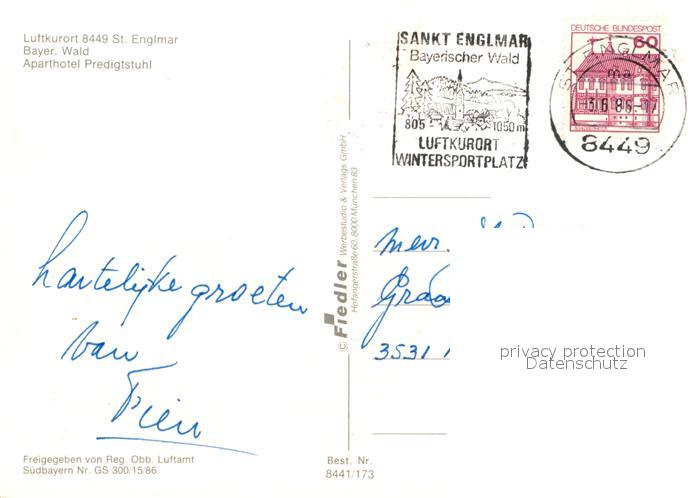 Luftkurort 8449 St. Englmar
Bayer. Wald
Aparthotel Predigtstuhl
SANKT ENGLMAR
Bayerischer Wald
805 - 1050m
LUFTKURORT
WINTERSPORTPLATZ
DEUTSCHE BUNDESPOST
60
ST. ENGLMAR
ma
-3.6.86-17
8449
hartelijke groeten
van
Fien
© Fiedler Werbestudio & Verlags GmbH
Hofangerstraße 60, 8000 München 83
mevr.
3531
privacy protection
Datenschutz
Freigegeben von Reg. Obb. Luftamt
Südbayern Nr. GS 300/15/86
Best. Nr.
8441/173